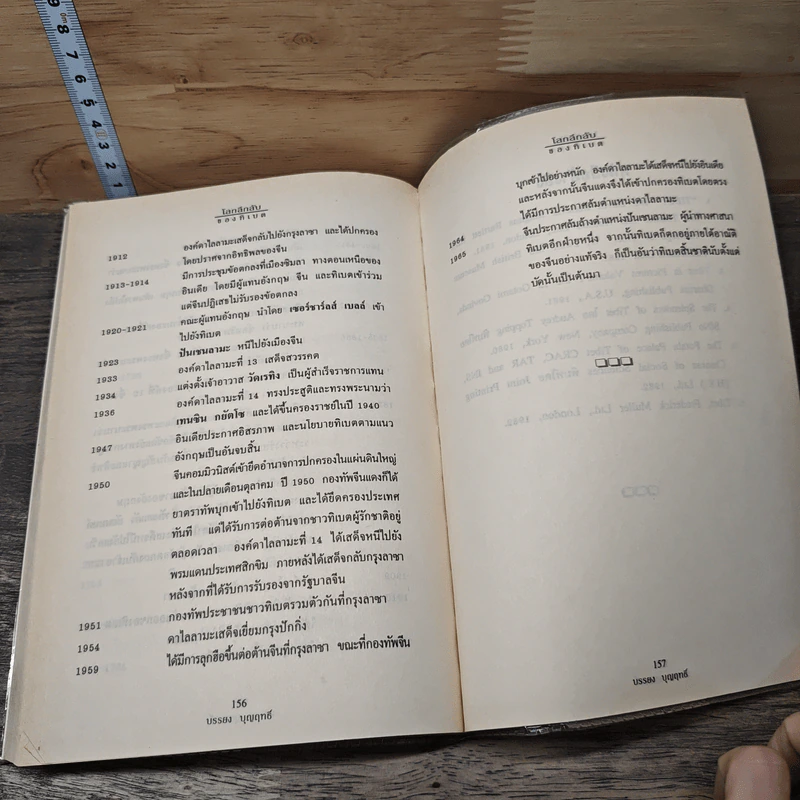 โลกลึกลับ
ของทิเบต
1912 องค์ดาไลลามะเสด็จกลับไปยังกรุงลาซา และได้ปกครอง
โดยปราศจากอิทธิพลของจีน
1913-1914 มีการประชุมข้อตกลงที่เมืองซิมลา ทางตอนเหนือของ
อินเดีย โดยมีผู้แทนอังกฤษ จีน และทิเบตเข้าร่วม
แต่จีนปฏิเสธไม่รับรองข้อตกลง
1920-1921 คณะผู้แทนอังกฤษ นำโดย เซอร์ชาร์ลส์ เบลล์ เข้า
ไปยังทิเบต
1923 ปันเชนลามะ หนีไปยังเมืองจีน
1933 องค์ดาไลลามะที่ 13 เสด็จสวรรคต
1934 แต่งตั้งเจ้าอาวาส วัดเรทิง เป็นผู้สำเร็จราชการแทน
1936 องค์ดาไลลามะที่ 14 ทรงประสูติและทรงพระนามว่า
เทนซิน กยัตโช และได้ขึ้นครองราชย์ในปี 1940
1947 อินเดียประกาศอิสรภาพ และนโยบายทิเบตตามแนว
อังกฤษเป็นอันจบสิ้น
1950 จีนคอมมิวนิสต์เข้ายึดอำนาจการปกครองในแผ่นดินใหญ่
และในปลายเดือนตุลาคม ปี 1950 กองทัพจีนแดงก็ได้
ยาตราทัพบุกเข้าไปยังทิเบต และได้ยึดครองประเทศ
ทันที แต่ได้รับการต่อต้านจากชาวทิเบตผู้รักชาติอยู่
ตลอดเวลา องค์ดาไลลามะที่ 14 ได้เสด็จหนีไปยัง
พรมแดนประเทศสิกขิม ภายหลังได้เสด็จกลับกรุงลาซา
หลังจากที่ได้รับการรับรองจากรัฐบาลจีน
1951 กองทัพประชาชนชาวทิเบตรวมตัวกันที่กรุงลาซา
1954 ดาไลลามะเสด็จเยี่ยมกรุงปักกิ่ง
1959 ได้มีการลุกฮือขึ้นต่อต้านจีนที่กรุงลาซา ขณะที่กองทัพจีน
156
บรรยง บุญฤทธิ์
โลกลึกลับ
ของทิเบต
บุกเข้าไปอย่างหนัก องค์ดาไลลามะได้เสด็จหนีไปยังอินเดีย
และหลังจากนั้นจีนแดงจึงได้เข้าปกครองทิเบตโดยตรง
ได้มีการประกาศล้มตำแหน่งดาไลลามะ
1964 จีนประกาศล้มล้างตำแหน่งปันเชนลามะ ผู้นำทางศาสนา
1965 ทิเบตอีกฝ่ายหนึ่ง จากนั้นทิเบตก็ตกอยู่ภายใต้อาณัติ
ของจีนอย่างแท้จริง ก็เป็นอันว่าทิเบตสิ้นชาตินับตั้งแต่
บัดนั้นเป็นต้นมา
157
บรรยง บุญฤทธิ์
9
8
7
6
5
4
3
2
1